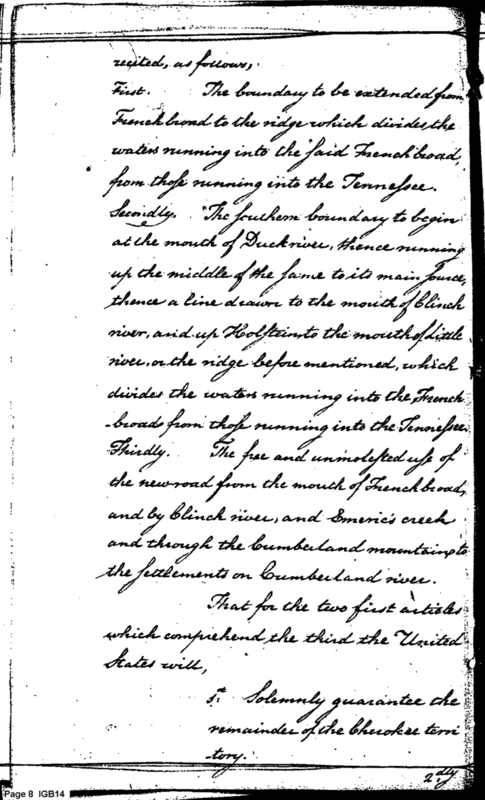 recited, as follows,
First. The boundary to be extended from
French broad to the ridge which divides the
waters running into the said French broad,
from those running into the Tennessee.
Secondly. The southern boundary to begin
at the mouth of Duck river, thence running
up the middle of the same to its main source,
thence a line drawn to the mouth of Clinch
river, and up Holstein to the mouth of little
river, or the ridge before mentioned, which
divides the waters running into the French
broad from those running into the Tennessee.
Thirdly. The free and unmolested use of
the new road from the mouth of French broad,
and by Clinch river, and Emerie's creek
and through the Cumberland mountains to
the settlements on Cumberland river.
That for the two first articles
which comprehend the third the United
States will,
1st. Solemnly guarantee the
remainder of the Cherokee terri
-tory.
2.dly
Page 8 IGB14